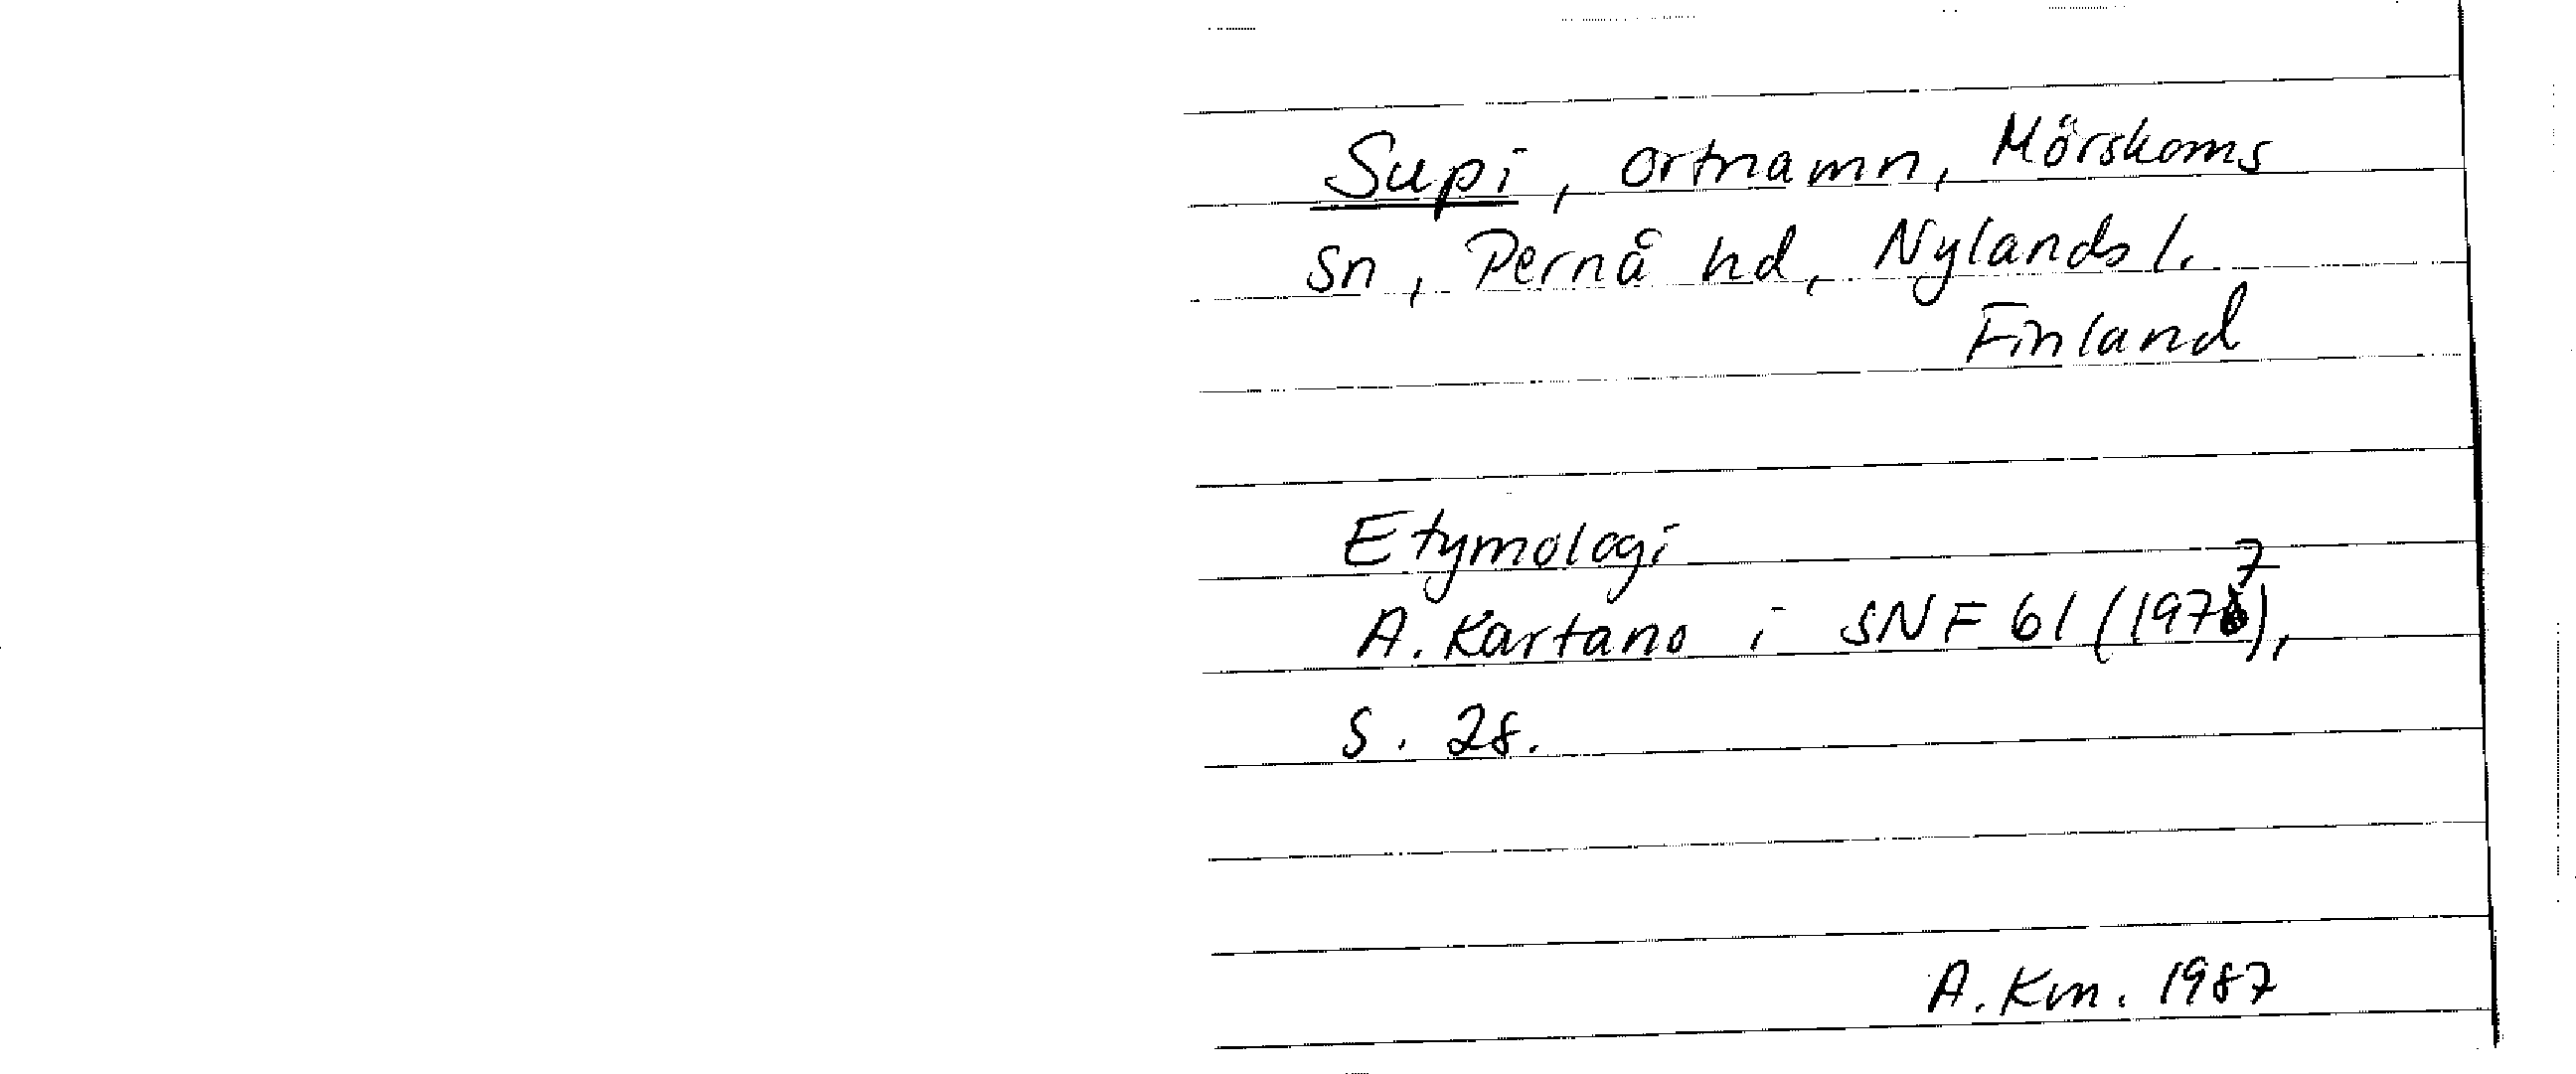 Supi, ortnamn, Mörskoms
sn, Pernå hd, Nylands l.
Finland
Etymologi
A. Kartano i SNF 61 (1977),
s. 28.
A. Km. 1987